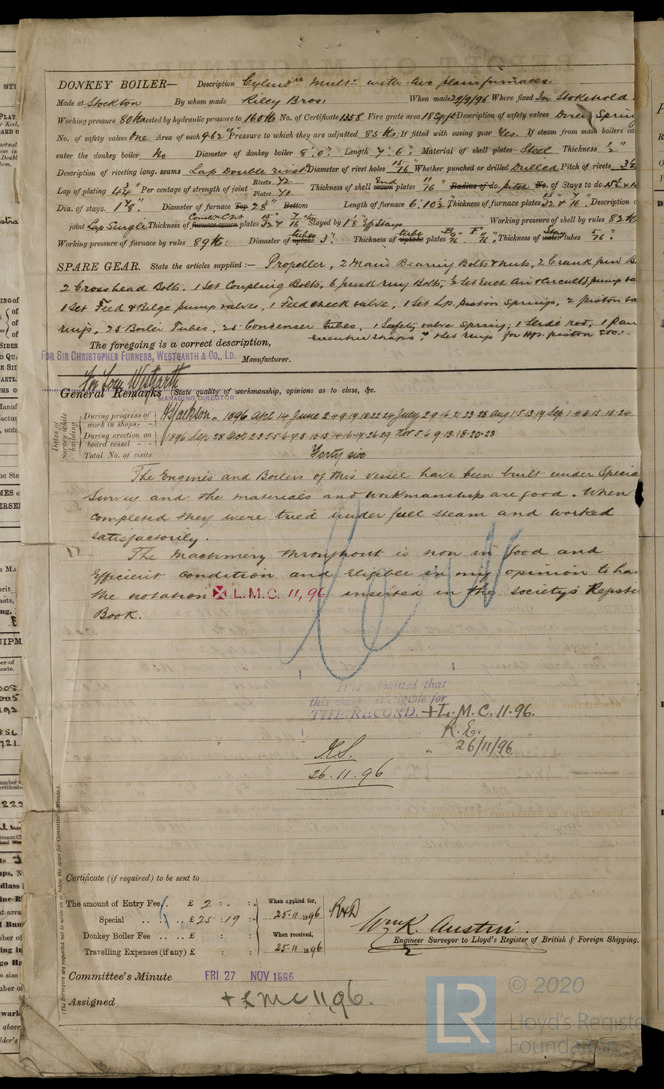 DONKEY BOILER— Description Cylindre Mult. with two plain furnaces
Made at Stockton By whom made Riley Bros. When made 29/9/96 Where fixed In Stokehold
Working pressure 80 lbs tested by hydraulic pressure to 160 lbs No. of Certificate 1358 Fire grate area 18 sq ft Description of safety valves Direct Spring
No. of safety valves One Area of each 9.62 Pressure to which they are adjusted 85 lbs If fitted with easing gear Yes. If steam from main boilers can
enter the donkey boiler No Diameter of donkey boiler 8'.0" Length 7'.6" Material of shell plates Steel Thickness ½"
Description of riveting long. seams Lap Double rivet Diameter of rivet holes 15/16 Whether punched or drilled Drilled Pitch of rivets
Lap of plating Per centage of strength of joint Rivets 72 Plates 71 Thickness of shell crown plates 11/16 Radius of do. No. of Stays to do.
Dia. of stays. 1⅞" Diameter of furnace Top 28" Bottom Length of furnace 6'.10½" Thickness of furnace plates Description of
joint Lap Single Thickness of furnace crown plates Stayed by Working pressure of shell by rules 82 lbs
Working pressure of furnace by rules 89 lbs: Diameter of uptake 3" Thickness of uptake plates Thickness of water tubes 5/16"
SPARE GEAR. State the articles supplied:— Propeller, 2 Main Bearing Bolts & nuts, 2 Crank pin B
2 Crosshead Bolts. 1 Set Coupling Bolts, 6 junk ring Bolts, ½ Set each Air & Circulg pump va
1 Set Feed & Bilge pump valves, 1 Feed check valve, 1 Set Lp piston Springs, 2 piston va
rings, 25 Boiler Tubes, 25 Condenser tubes, 1 Safety valve Spring, 1 slide rod, 1 pair
eccentric straps & 1 Set rings for Hp. piston &c.
The foregoing is a correct description,
FOR SIR CHRISTOPHER FURNESS, WESTGARTH & CO., LD. Manufacturer.
Tom Westgarth
MANAGING DIRECTOR
General Remarks (State quality of workmanship, opinions as to class, &c.
Dates of Survey while building
During progress of work in shops - - 1896 Apl 14 June 2 4 9 17 18 22 24 July 2 9 16 21 23 28 Aug 1 5 13 19 Sep 1 4 8 15 18 24
During erection on board vessel - - - 1896 Sep 28 Oct 2 3 5 6 7 8 12 13 14 16 17 26 29 Nov 5 6 9 13 18 20 23
Total No. of visits Forty six
The Engines and Boilers of this vessel have been built under Special
Survey and the materials and workmanship are good. When
completed they were tried under full steam and worked
satisfactorily.
The Machinery throughout is now in good and
Efficient condition and eligible in my opinion to have
the notation ✠ L.M.C. 11,96 inserted in the Society's Register
Book.
It is submitted that
this vessel is eligible for
THE RECORD. + L.M.C. 11.96.
R.E.
26/11/96
26.11.96
Certificate (if required) to be sent to
The amount of Entry Fee £ 2 : . : When applied for,
Special .. .. £ 25 : 19 : 25.11.1896
Donkey Boiler Fee .. .. £ : : When received,
Travelling Expenses (if any) £ : : 25.11.1896
Wm R. Austin
Engineer Surveyor to Lloyd's Register of British & Foreign Shipping.
Committee's Minute FRI 27 NOV 1896
Assigned + L M C 11,96.
LR
© 2020
Lloyd's Register
Foundation